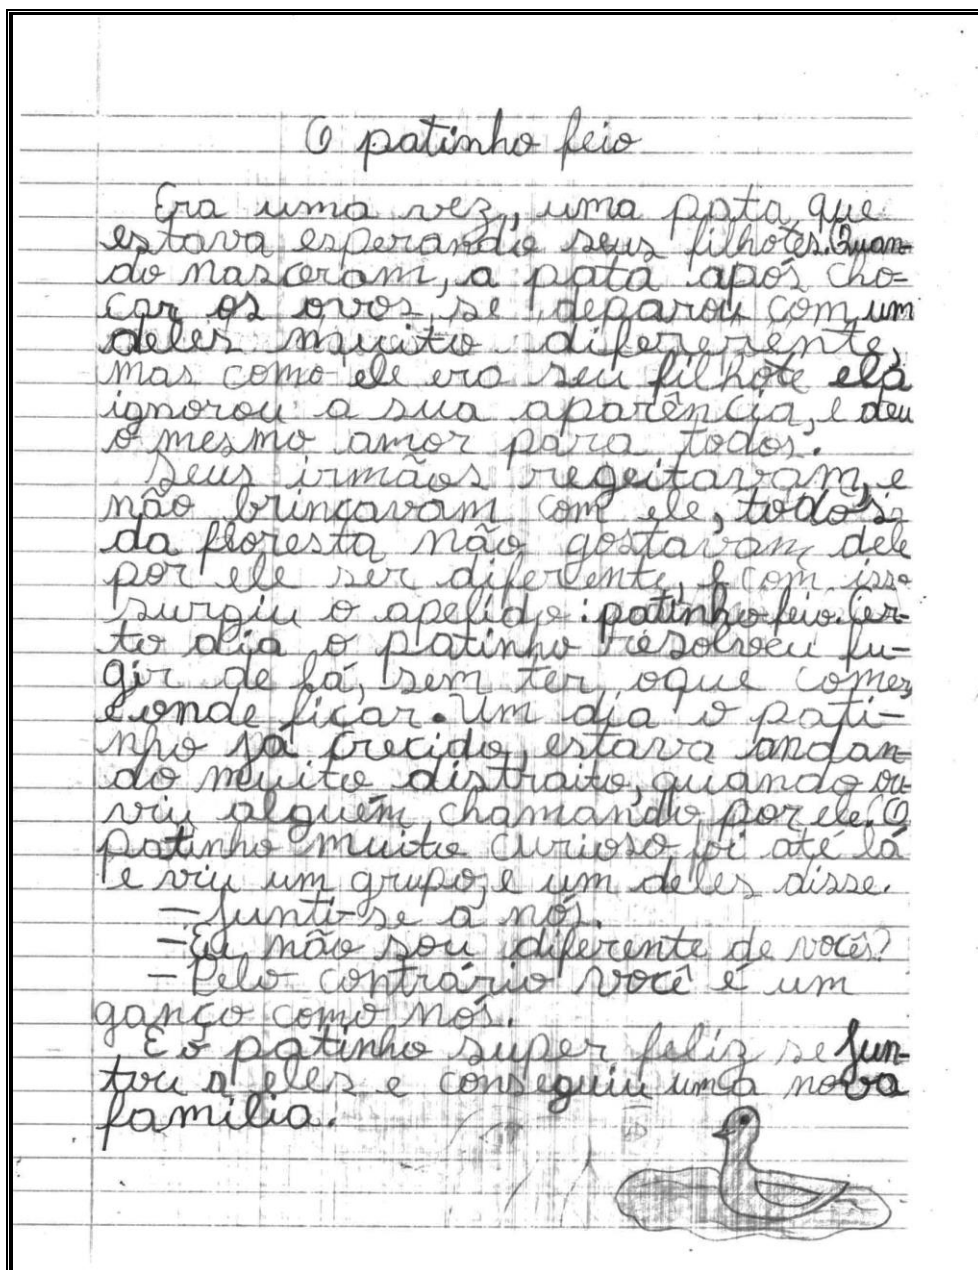 O patinho feio
Era uma vez, uma pata que
estava esperando seus filhotes. Quan-
do nasceram, a pata após cho-
car os ovos, se deparou com um
deles muito difererente,
mas como ele era seu filhote ela
ignorou a sua aparência, e deu
o mesmo amor para todos.
Seus irmãos regeitavam, e
não brincavam com ele, todos
da floresta não gostavam dele
por ele ser diferente, e com isso
surgiu o apelido: patinho feio. Cer-
to dia o patinho resolveu fu-
gir de lá, sem ter oque comer,
e onde ficar. Um dia o pati-
nho já crecido, estava andan-
do muito distraito, quando ou-
viu alguém chamando por ele. O
patinho muito curioso foi até lá
e viu um grupo, e um deles disse.
- Junti-se a nós.
- Eu não sou diferente de vocês?
- Pelo contrário você é um
ganço como nós.
E o patinho super feliz se jun-
tou a eles e conseguiu uma nova
familia.